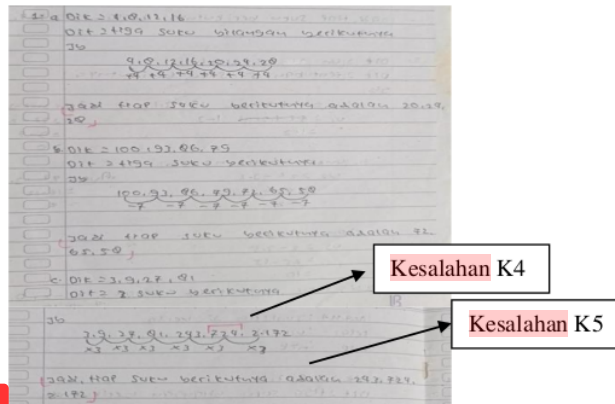 1. a Dik = 4, 8, 12, 16
Dit = tiga suku bilangan berikutnya
Jb
4, 8, 12, 16, 20, 24, 28
+4 +4 +4 +4 +4 +4
Jadi tiap suku berikutnya adalah 20, 24,
28
b. Dik = 100, 93, 86, 79
Dit = tiga suku berikutnya
Jb
100, 93, 86, 79, 72, 65, 58
-7 -7 -7 -7 -7 -7
Jadi tiap suku berikutnya adalah 72,
65, 58
c. Dik = 3, 9, 27, 81
Dit = 3 suku berikutnya
Kesalahan K4
Jb
3, 9, 27, 81, 243, 724, 2.172
x3 x3 x3 x3 x3 x3
Kesalahan K5
Jadi, tiap suku berikutnya adalah 243, 724,
2.172